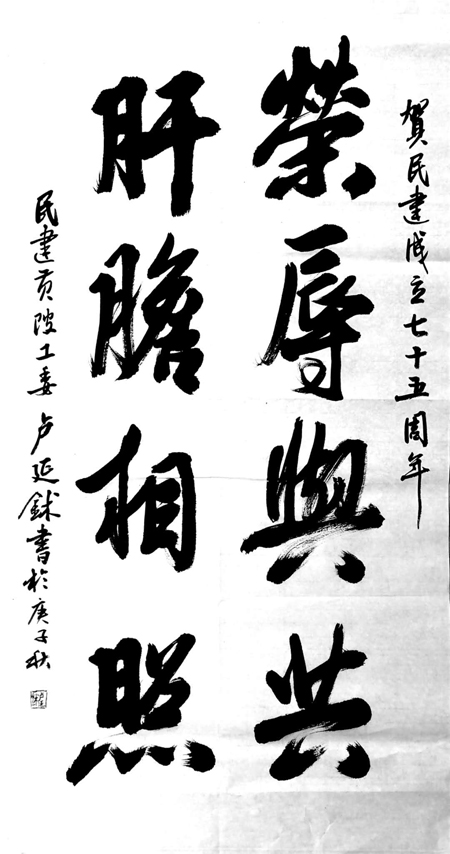 賀民建成立七十五周年
榮辱與共
肝膽相照
民建黄陂工委 卢延鉥書於庚子秋